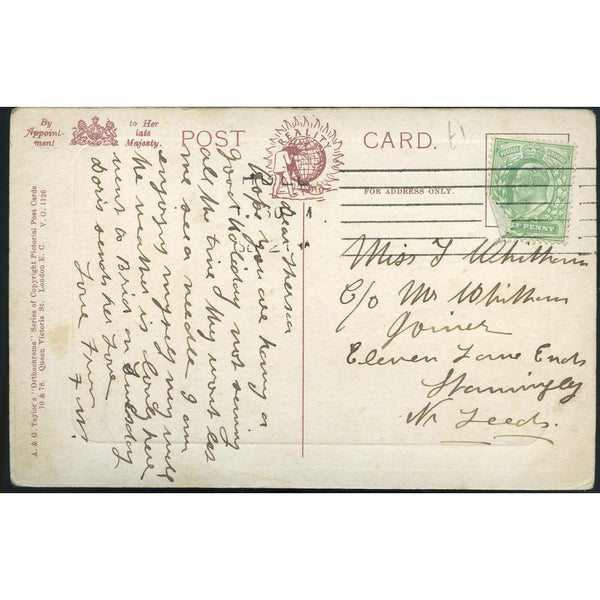 By
Appoint-
ment.
to Her
late
Majesty.
POST
REALITY
CARD.
£1
FOR ADDRESS ONLY.
PENNY
A. & G. Taylor's "Orthochrome" Series of Copyright Pictorial Post Cards
70 & 78. Queen Victoria St. London E. C. V. O. 1126
Dear Theresa
Hope you are having a
good holiday, not sewing
all the time I they wont let
me see a needle I am
enjoying myself very well
the weather is lovely here
went to Brid on Tuesday
Doris sends her Love
Love from
F. W.
Miss T Whitham
C/o Mr Whitham
Joiner
Eleven Lane Ends
Stanningley
Nr Leeds.